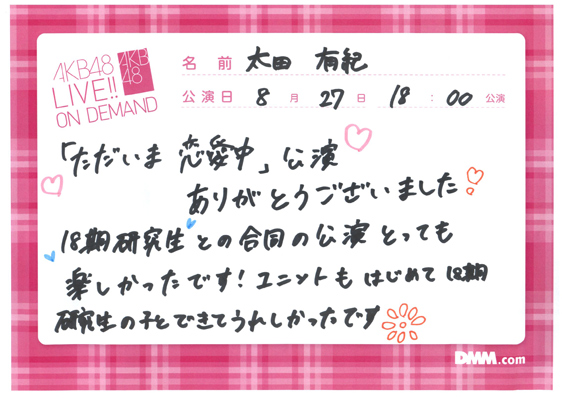 AKB48
LIVE!!
ON DEMAND
AKB
48
名 前 太田 有紀
公演日 8 月 27 日 18 : 00 公演
「ただいま 恋愛中」公演
ありがとうございました
18期研究生との合同の公演とっても
楽しかったです！ユニットもはじめて18期
研究生の子とできてうれしかったです
DMM.com